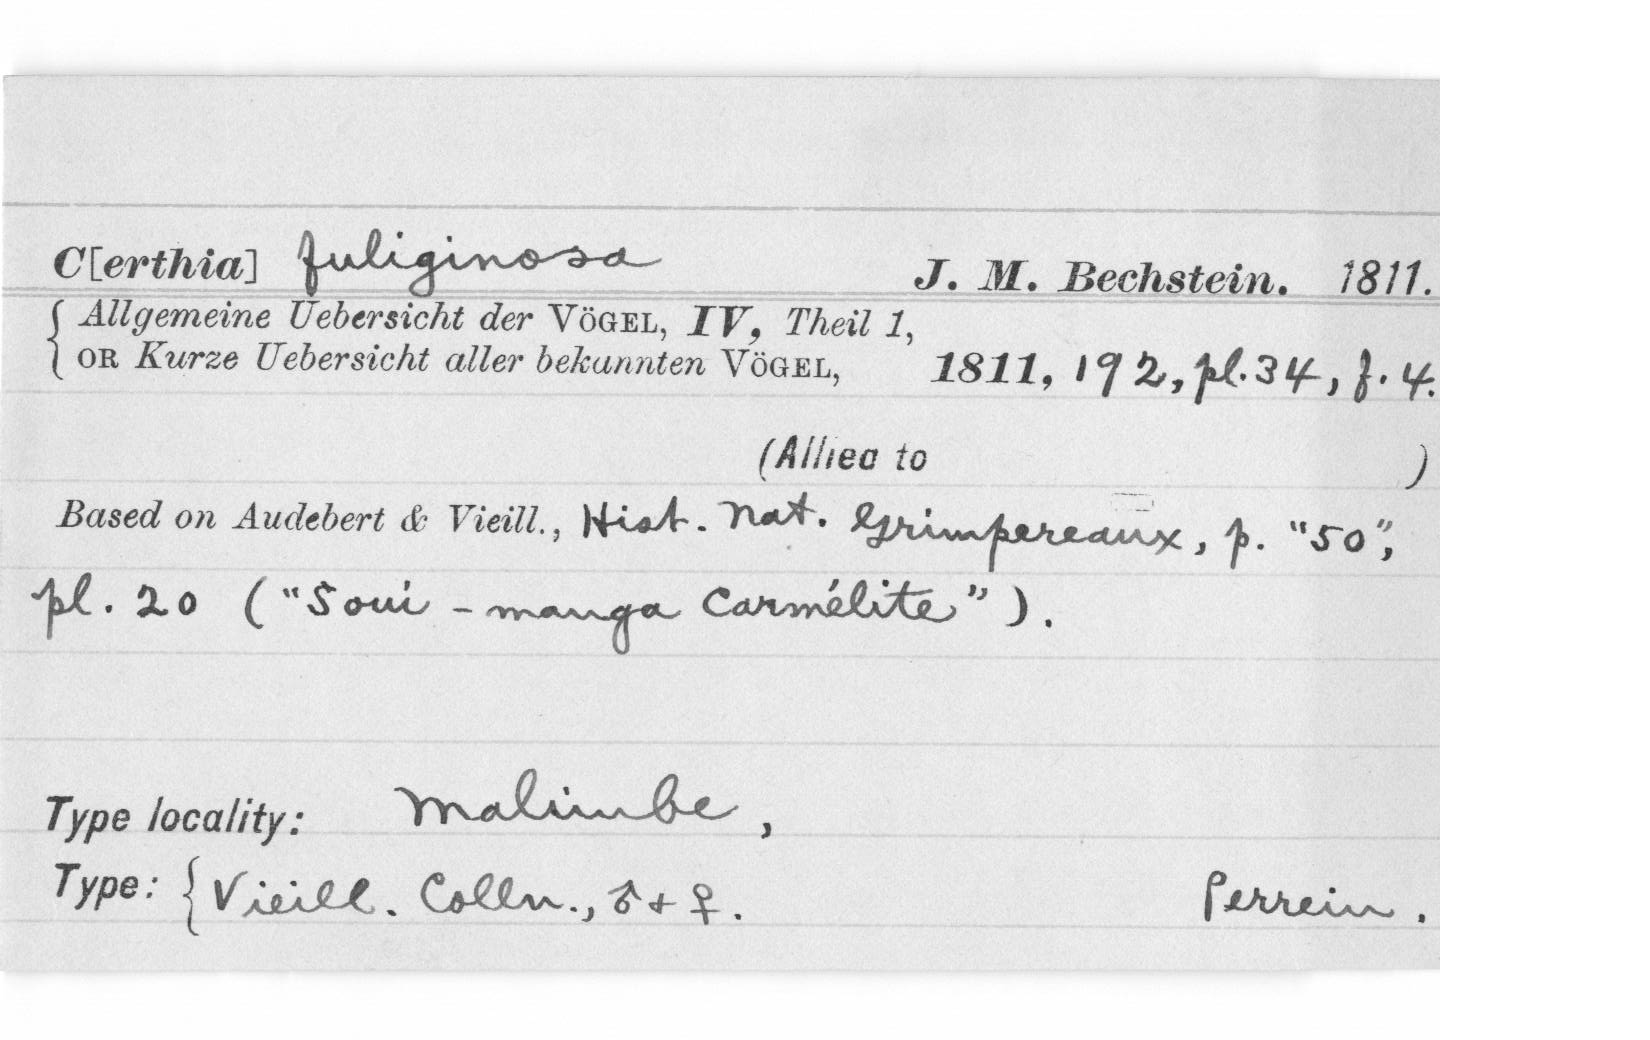 C[erthia] fuliginosa J. M. Bechstein. 1811.
{ Allgemeine Uebersicht der VÖGEL, IV, Theil 1,
OR Kurze Uebersicht aller bekannten VÖGEL, 1811, 192, pl. 34, f. 4.
(Allied to )
Based on Audebert & Vieill., Hist. Nat. Grimpereaux, p. "50",
pl. 20 ("Soui-manga Carmélite").
Type locality: Malimbe,
Type: { Vieill. Colln., ♂ + ♀. Perrein.